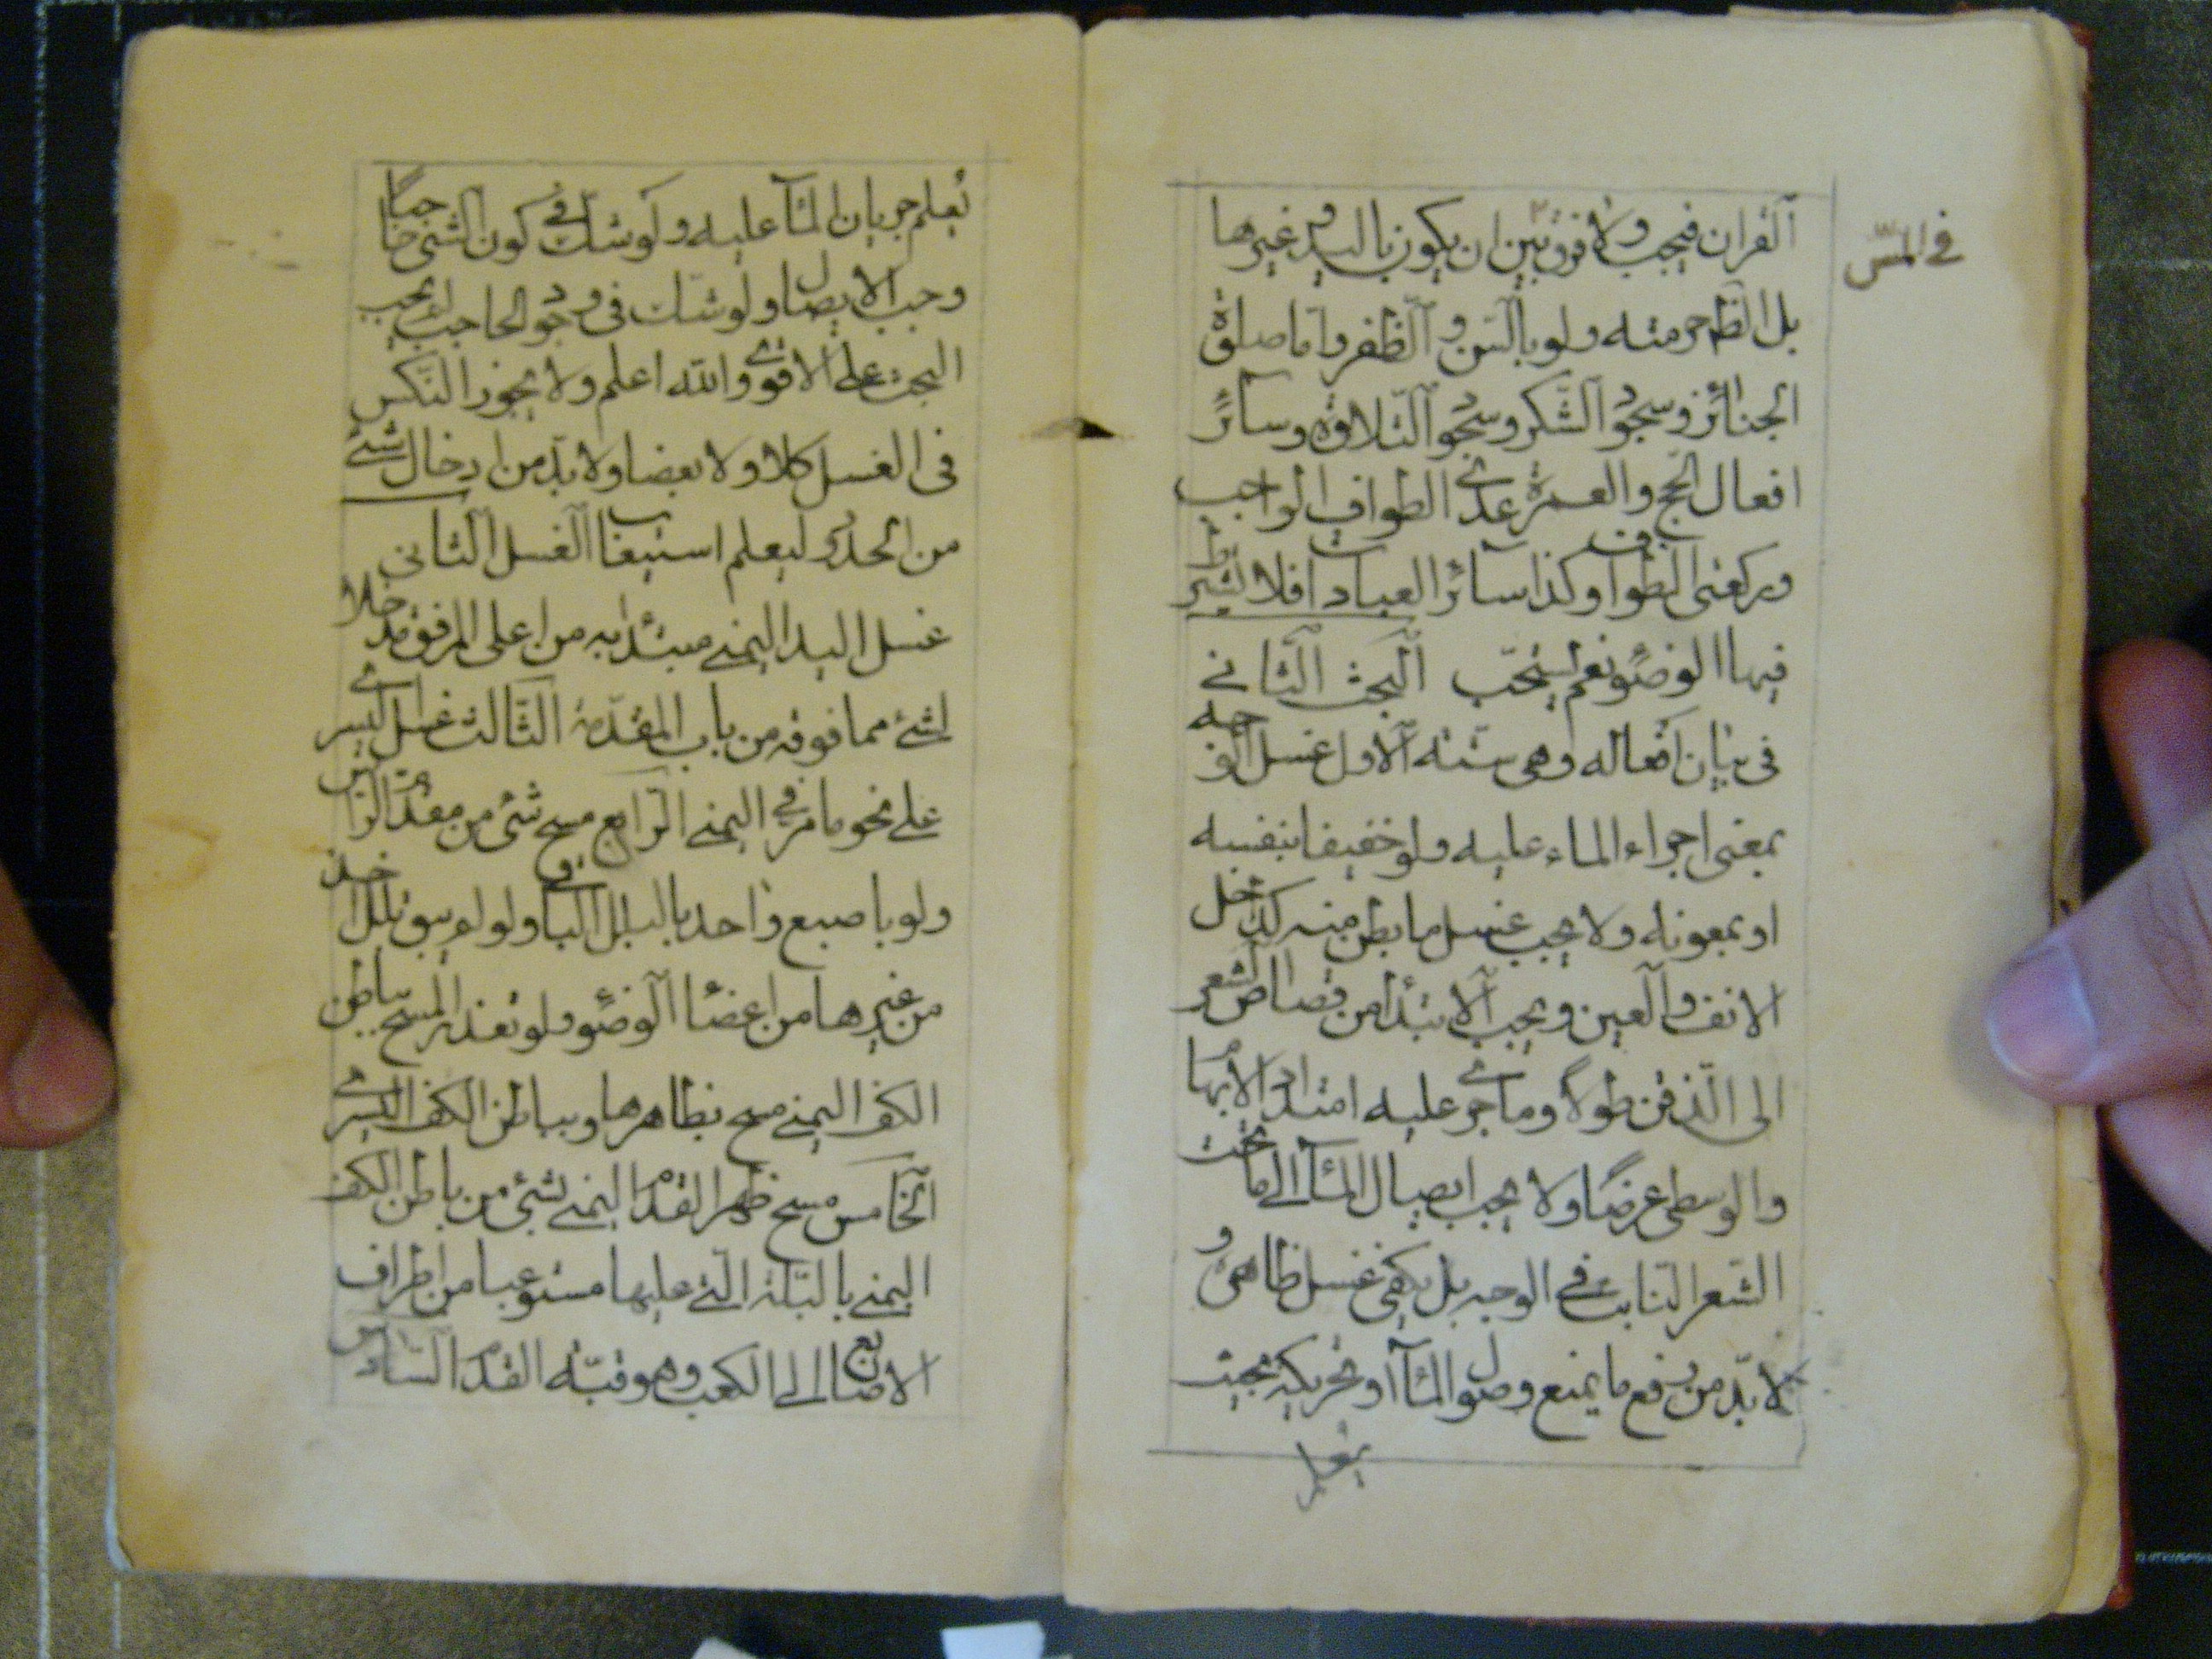 في المسّ
القران فيجب ولا فرق بين ان يكون باليد وغيرها
بل الظهر منه ولو بالسن و الظفر واما صلوة
الجنائز وسجود الشكر وسجود التلاوة وسائر
افعال الحج والعمرة عدى الطواف الواجب
وركعتى الطواف وكذا سائر العبادات فلا يشترط
فيها الوضوء نعم يستحب البحث الثاني
في بيان افعاله وهي ستة الاول غسل الوجه
بمعنى اجراء الماء عليه ولو خفيفا بنفسه
او بمعونة ولا يجب غسل ما بطن منه كداخل
الانف والعين ويجب الابتدأ من قصاص الشعر
الى الذقن طولاً وما جرى عليه امتداد الابهام
والوسطى عرضًا ولا يجب ايصال الماء الى ما تحت
الشعر النابت في الوجه بل يكفي غسل ظاهره و
لا بدّ من رفع ما يمنع وصول الماء او تحريكه بحيث
يعلم
يعلم جريان الماء عليه ولو شك في كون الشئ حاجبًا
وجب الايصال ولو شك في وجود الحاجب لم يجب
البحث على الاقوى والله اعلم ولا يجوز النكس
في الغسل كلا ولا بعضا ولا بدّ من ادخال شئ
من الحدود ليعلم استيعاب الغسل الثاني
غسل اليد اليمنى مبتدأ به من اعلى المرفق مدخلا
لشئ مما فوقه من باب المقدّمة الثالث غسل اليسرى
على نحو ما مرّ في اليمنى الرابع مسح شئ من مقدم الراس
ولو باصبع واحد بالبلل الباقي ولو لم يبق بلل اخذ
من غيرها من اعضاء الوضوء ولو تعذر المسح بباطن
الكف اليمنى مسح بظاهرها وبباطن الكف اليسرى
الخامس مسح ظهر القدم اليمنى بشئ من باطن الكف
اليمنى بالبلة التي عليها مستوعبا من اطراف
الاصابع الى الكعب وهو قبّة القدم السادس